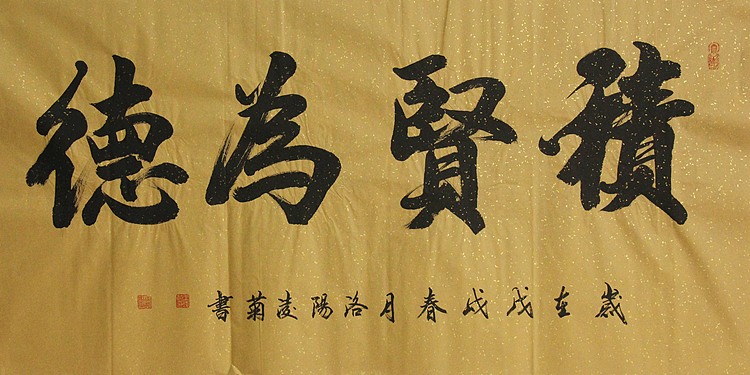 積賢為德
歲在戊戌春月洛陽凌菊書